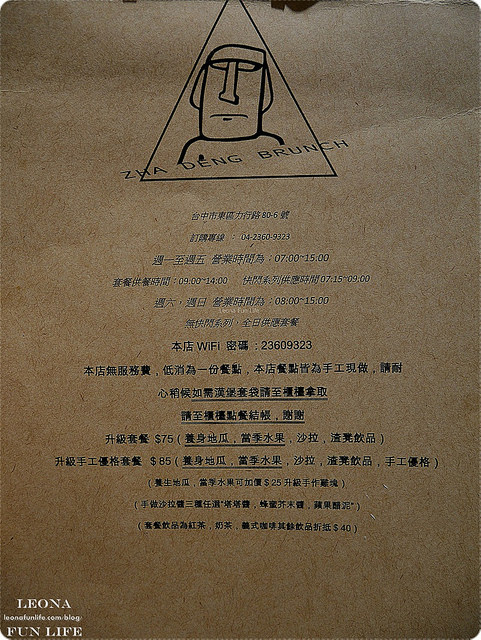 ZHA DENG BRUNCH
台中市東區力行路80-6號
訂購專線 : 04-2360-9323
週一至週五 營業時間為:07:00~15:00
套餐供餐時間:09:00~14:00 快閃系列供應時間07:15~09:00
週六,週日 營業時間為:08:00~15:00
Leona Fun Life
無快閃系列,全日供應套餐
本店 WiFi 密碼 : 23609323
本店無服務費,低消為一份餐點,本店餐點皆為手工現做,請耐
心稍候如需漢堡套袋請至櫃檯拿取
請至櫃檯點餐結帳,謝謝
升級套餐 $75(養身地瓜,當季水果,沙拉,渣凳飲品)
升級手工優格套餐 $85(養身地瓜,當季水果,沙拉,渣凳飲品,手工優格)
(養生地瓜,當季水果可加價$25升級手作雞塊)
(手做沙拉醬三種任選"塔塔醬,蜂蜜芥末醬,蘋果醋泥")
(套餐飲品為紅茶,奶茶,義式咖啡其餘飲品折抵$40)
LEONA
leonafunlife.com/blog
FUN LIFE